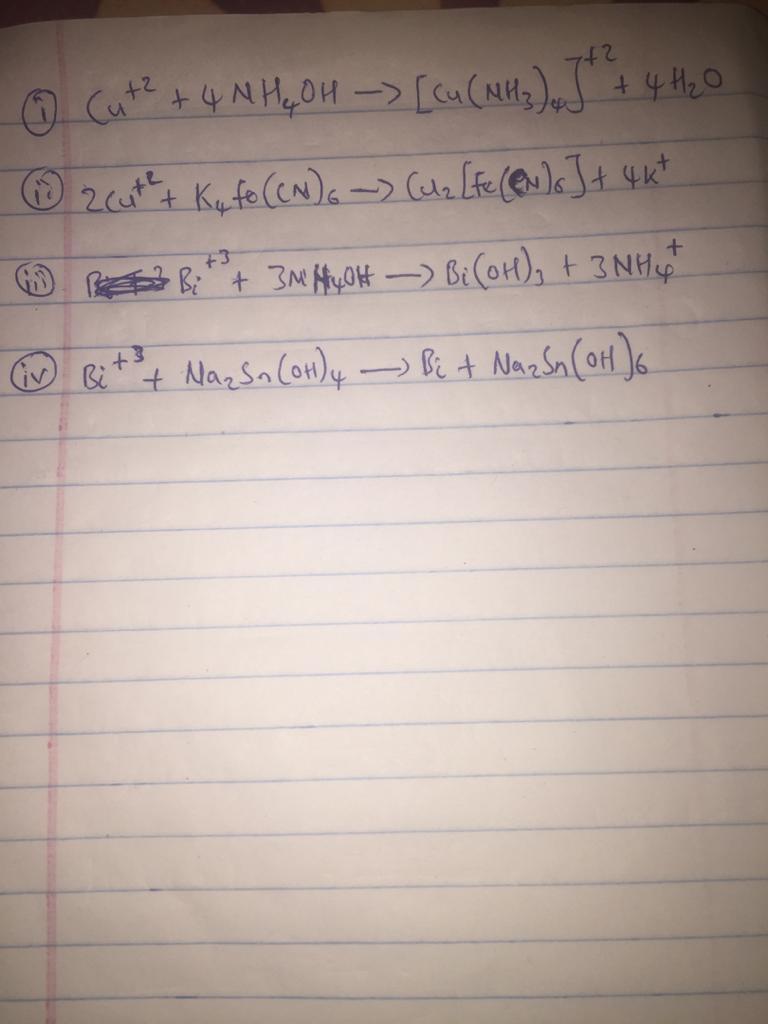 (i) Cu⁺² + 4NH₄OH → [Cu(NH₃)₄]⁺² + 4H₂O
(ii) 2Cu⁺² + K₄Fe(CN)₆ → Cu₂[Fe(CN)₆] + 4K⁺
(iii) Bi⁺³ + 3NH₄OH → Bi(OH)₃ + 3NH₄⁺
(iv) Bi⁺³ + Na₂Sn(OH)₄ → Bi + Na₂Sn(OH)₆